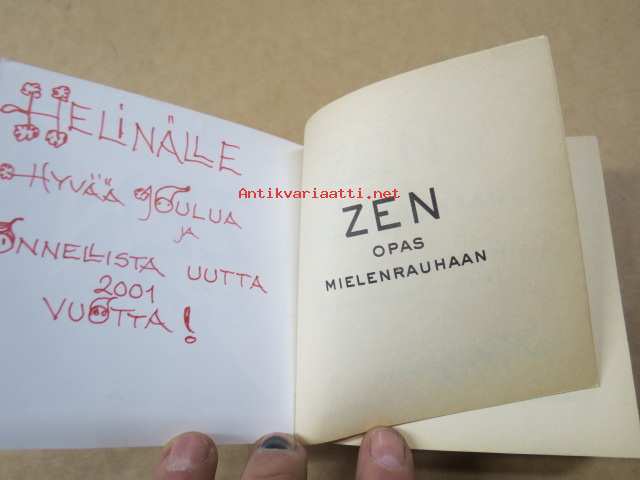 HELINÄLLE
HYVÄÄ JOULUA
JA
ONNELLISTA UUTTA
2001
VUOTTA!
Antikvariaatti.net
ZEN
OPAS
MIELENRAUHAAN